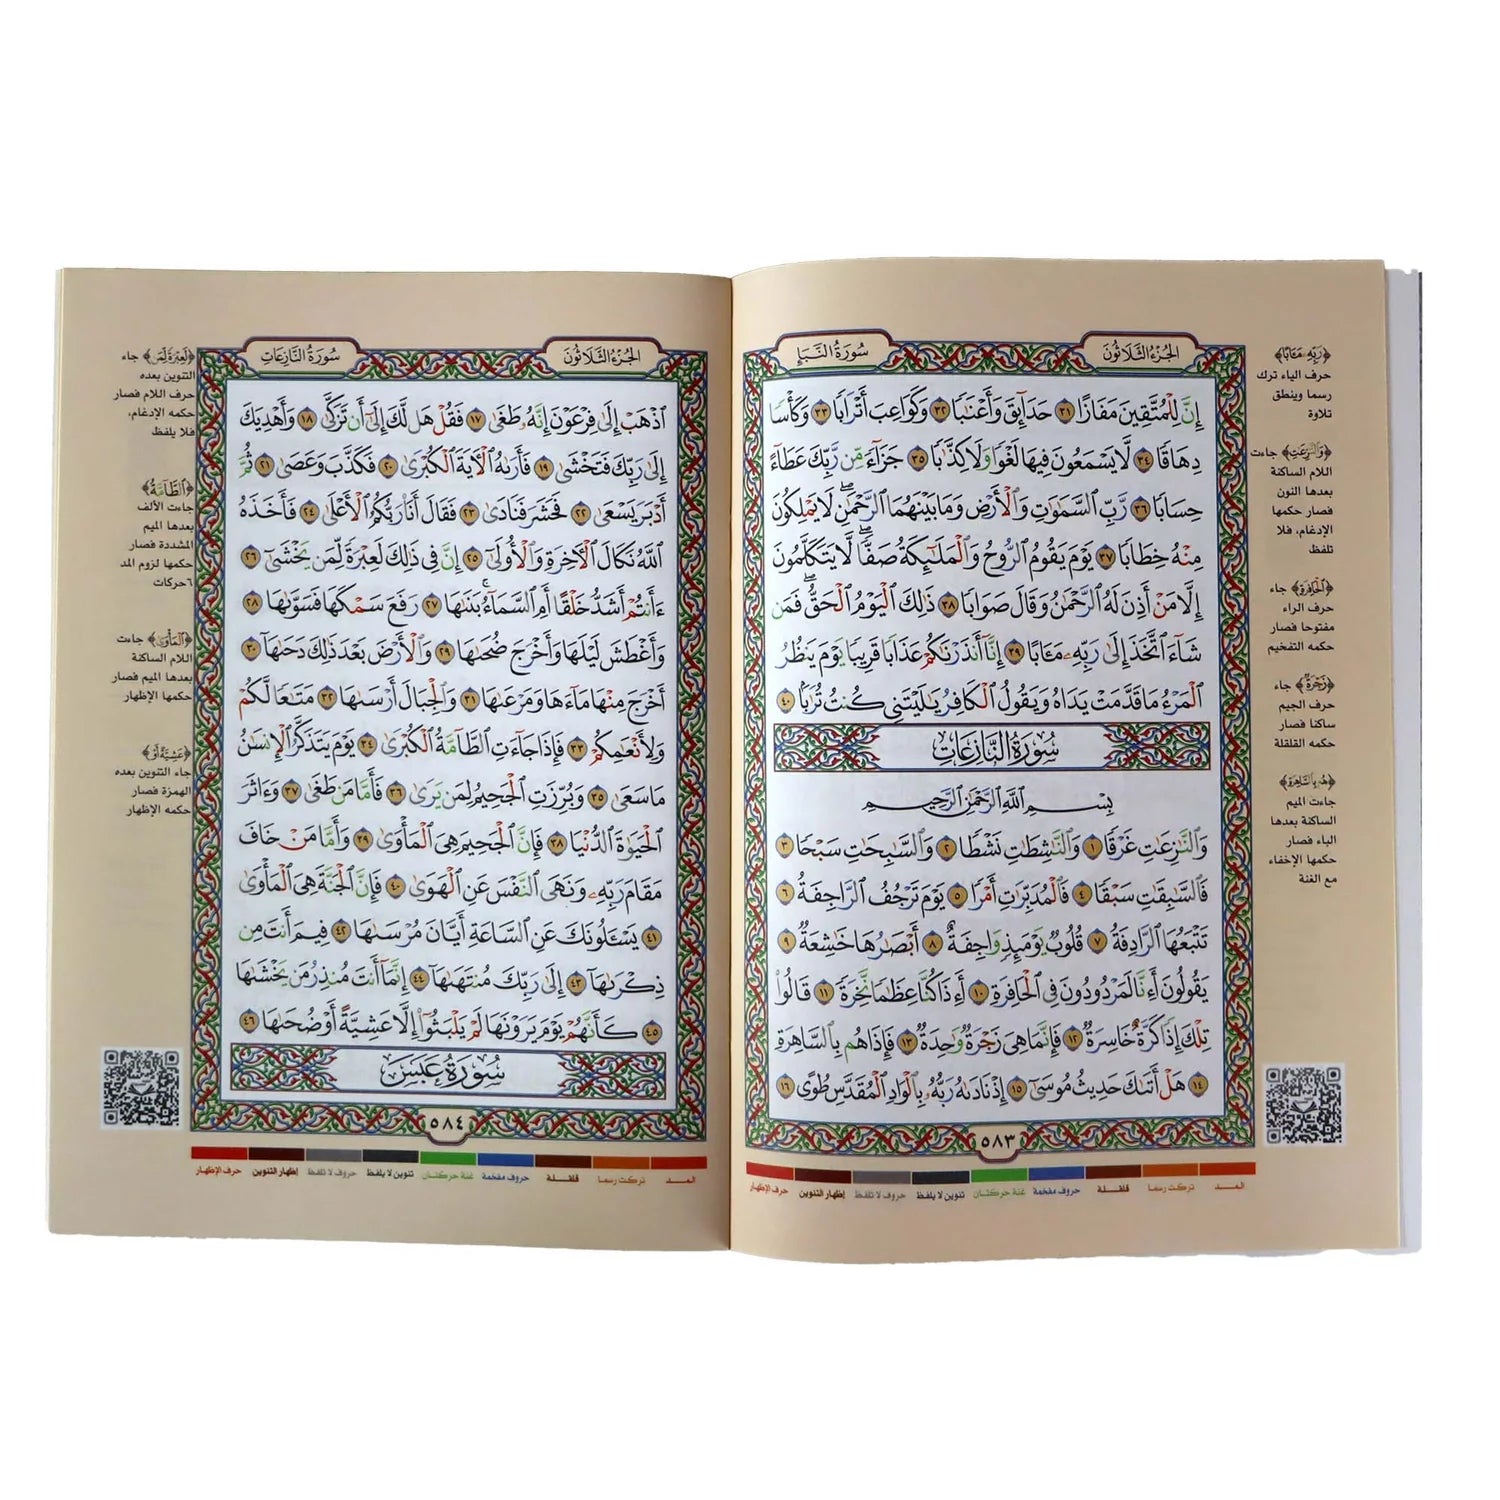 الجُزْءُ الثَّلَاثُونَ
سُورَةُ النَّبَإِ
إِنَّ لِلْمُتَّقِينَ مَفَازًا ٣١ حَدَآئِقَ وَأَعْنَٰبًا ٣٢ وَكَوَاعِبَ أَتْرَابًا ٣٣ وَكَأْسًا
دِهَاقًا ٣٤ لَّا يَسْمَعُونَ فِيهَا لَغْوًا وَلَا كِذَّٰبًا ٣٥ جَزَآءً مِّن رَّبِّكَ عَطَآءً
حِسَابًا ٣٦ رَّبِّ ٱلسَّمَٰوَٰتِ وَٱلْأَرْضِ وَمَا بَيْنَهُمَا ٱلرَّحْمَٰنِۖ لَا يَمْلِكُونَ
مِنْهُ خِطَابًا ٣٧ يَوْمَ يَقُومُ ٱلرُّوحُ وَٱلْمَلَٰٓئِكَةُ صَفًّاۖ لَّا يَتَكَلَّمُونَ
إِلَّا مَنْ أَذِنَ لَهُ ٱلرَّحْمَٰنُ وَقَالَ صَوَابًا ٣٨ ذَٰلِكَ ٱلْيَوْمُ ٱلْحَقُّۖ فَمَن
شَآءَ ٱتَّخَذَ إِلَىٰ رَبِّهِۦ مَـَٔابًا ٣٩ إِنَّآ أَنذَرْنَٰكُمْ عَذَابًا قَرِيبًا يَوْمَ يَنظُرُ
ٱلْمَرْءُ مَا قَدَّمَتْ يَدَاهُ وَيَقُولُ ٱلْكَافِرُ يَٰلَيْتَنِى كُنتُ تُرَٰبًۢا ٤٠
سُورَةُ النَّازِعَاتِ
بِسْمِ ٱللَّهِ ٱلرَّحْمَٰنِ ٱلرَّحِيمِ
وَٱلنَّٰزِعَٰتِ غَرْقًا ١ وَٱلنَّٰشِطَٰتِ نَشْطًا ٢ وَٱلسَّٰبِحَٰتِ سَبْحًا ٣
فَٱلسَّٰبِقَٰتِ سَبْقًا ٤ فَٱلْمُدَبِّرَٰتِ أَمْرًا ٥ يَوْمَ تَرْجُفُ ٱلرَّاجِفَةُ ٦
تَتْبَعُهَا ٱلرَّادِفَةُ ٧ قُلُوبٌ يَوْمَئِذٍ وَاجِفَةٌ ٨ أَبْصَٰرُهَا خَٰشِعَةٌ ٩
يَقُولُونَ أَءِنَّا لَمَرْدُودُونَ فِى ٱلْحَافِرَةِ ١٠ أَءِذَا كُنَّا عِظَٰمًا نَّخِرَةً ١١ قَالُوا۟
تِلْكَ إِذًا كَرَّةٌ خَاسِرَةٌ ١٢ فَإِنَّمَا هِىَ زَجْرَةٌ وَٰحِدَةٌ ١٣ فَإِذَا هُم بِٱلسَّاهِرَةِ
١٤ هَلْ أَتَىٰكَ حَدِيثُ مُوسَىٰٓ ١٥ إِذْ نَادَىٰهُ رَبُّهُۥ بِٱلْوَادِ ٱلْمُقَدَّسِ طُوًى ١٦
٥٨٣
المـــد
تركت رسما
قلقـلـة
حروف مفخمة
غنة حركتـان
تنوين لا يلفظ
حروف لا تلفظ
إظهار التنوين
حرف الإظهار
﴿رَبِّهِۦ مَـَٔابًا﴾
حرف الياء ترك
رسما وينطق
تلاوة
﴿وَٱلنَّٰزِعَٰتِ﴾ جاءت
اللام الساكنة
بعدها النون
فصار حكمها
الإدغام، فلا
تلفظ
﴿ٱلْحَافِرَةِ﴾ جاء
حرف الراء
مفتوحا فصار
حكمه التفخيم
﴿زَجْرَةٌ﴾ جاء
حرف الجيم
ساكنا فصار
حكمه القلقلة
﴿هُم بِٱلسَّاهِرَةِ﴾
جاءت الميم
الساكنة بعدها
الباء فصار
حكمها الإخفاء
مع الغنة
الجُزْءُ الثَّلَاثُونَ
سُورَةُ النَّازِعَاتِ
ٱذْهَبْ إِلَىٰ فِرْعَوْنَ إِنَّهُۥ طَغَىٰ ١٧ فَقُلْ هَل لَّكَ إِلَىٰٓ أَن تَزَكَّىٰ ١٨ وَأَهْدِيَكَ
إِلَىٰ رَبِّكَ فَتَخْشَىٰ ١٩ فَأَرَىٰهُ ٱلْءَايَةَ ٱلْكُبْرَىٰ ٢٠ فَكَذَّبَ وَعَصَىٰ ٢١ ثُمَّ
أَدْبَرَ يَسْعَىٰ ٢٢ فَحَشَرَ فَنَادَىٰ ٢٣ فَقَالَ أَنَا۠ رَبُّكُمُ ٱلْأَعْلَىٰ ٢٤ فَأَخَذَهُ
ٱللَّهُ نَكَالَ ٱلْءَاخِرَةِ وَٱلْأُولَىٰٓ ٢٥ إِنَّ فِى ذَٰلِكَ لَعِبْرَةً لِّمَن يَخْشَىٰٓ ٢٦
ءَأَنتُمْ أَشَدُّ خَلْقًا أَمِ ٱلسَّمَآءُۚ بَنَىٰهَا ٢٧ رَفَعَ سَمْكَهَا فَسَوَّىٰهَا ٢٨
وَأَغْطَشَ لَيْلَهَا وَأَخْرَجَ ضُحَىٰهَا ٢٩ وَٱلْأَرْضَ بَعْدَ ذَٰلِكَ دَحَىٰهَآ ٣٠
أَخْرَجَ مِنْهَا مَآءَهَا وَمَرْعَىٰهَا ٣١ وَٱلْجِبَالَ أَرْسَىٰهَا ٣٢ مَتَٰعًا لَّكُمْ
وَلِأَنْعَٰمِكُمْ ٣٣ فَإِذَا جَآءَتِ ٱلطَّآمَّةُ ٱلْكُبْرَىٰ ٣٤ يَوْمَ يَتَذَكَّرُ ٱلْإِنسَٰنُ
مَا سَعَىٰ ٣٥ وَبُرِّزَتِ ٱلْجَحِيمُ لِمَن يَرَىٰ ٣٦ فَأَمَّا مَن طَغَىٰ ٣٧ وَءَاثَرَ
ٱلْحَيَوٰةَ ٱلدُّنْيَا ٣٨ فَإِنَّ ٱلْجَحِيمَ هِىَ ٱلْمَأْوَىٰ ٣٩ وَأَمَّا مَنْ خَافَ
مَقَامَ رَبِّهِۦ وَنَهَى ٱلنَّفْسَ عَنِ ٱلْهَوَىٰ ٤٠ فَإِنَّ ٱلْجَنَّةَ هِىَ ٱلْمَأْوَىٰ
٤١ يَسْـَٔلُونَكَ عَنِ ٱلسَّاعَةِ أَيَّانَ مُرْسَىٰهَا ٤٢ فِيمَ أَنتَ مِن
ذِكْرَىٰهَآ ٤٣ إِلَىٰ رَبِّكَ مُنتَهَىٰهَآ ٤٤ إِنَّمَآ أَنتَ مُنذِرُ مَن يَخْشَىٰهَا
٤٥ كَأَنَّهُمْ يَوْمَ يَرَوْنَهَا لَمْ يَلْبَثُوٓا۟ إِلَّا عَشِيَّةً أَوْ ضُحَىٰهَا ٤٦
سُورَةُ عَبَسَ
٥٨٤
المـــد
تركت رسما
قلقـلـة
حروف مفخمة
غنة حركتـان
تنوين لا يلفظ
حروف لا تلفظ
إظهار التنوين
حرف الإظهار
﴿لَعِبْرَةً لِّمَن﴾ جاء
التنوين بعده
حرف اللام فصار
حكمه الإدغام،
فلا يلفظ
﴿ٱلطَّآمَّةُ﴾
جاءت الألف
بعدها الميم
المشددة فصار
حكمها لزوم المد
٦حركات
﴿ٱلْمَأْوَىٰ﴾ جاءت
اللام الساكنة
بعدها الميم فصار
حكمها الإظهار
﴿عَشِيَّةً أَوْ﴾
جاء التنوين بعده
الهمزة فصار
حكمه الإظهار